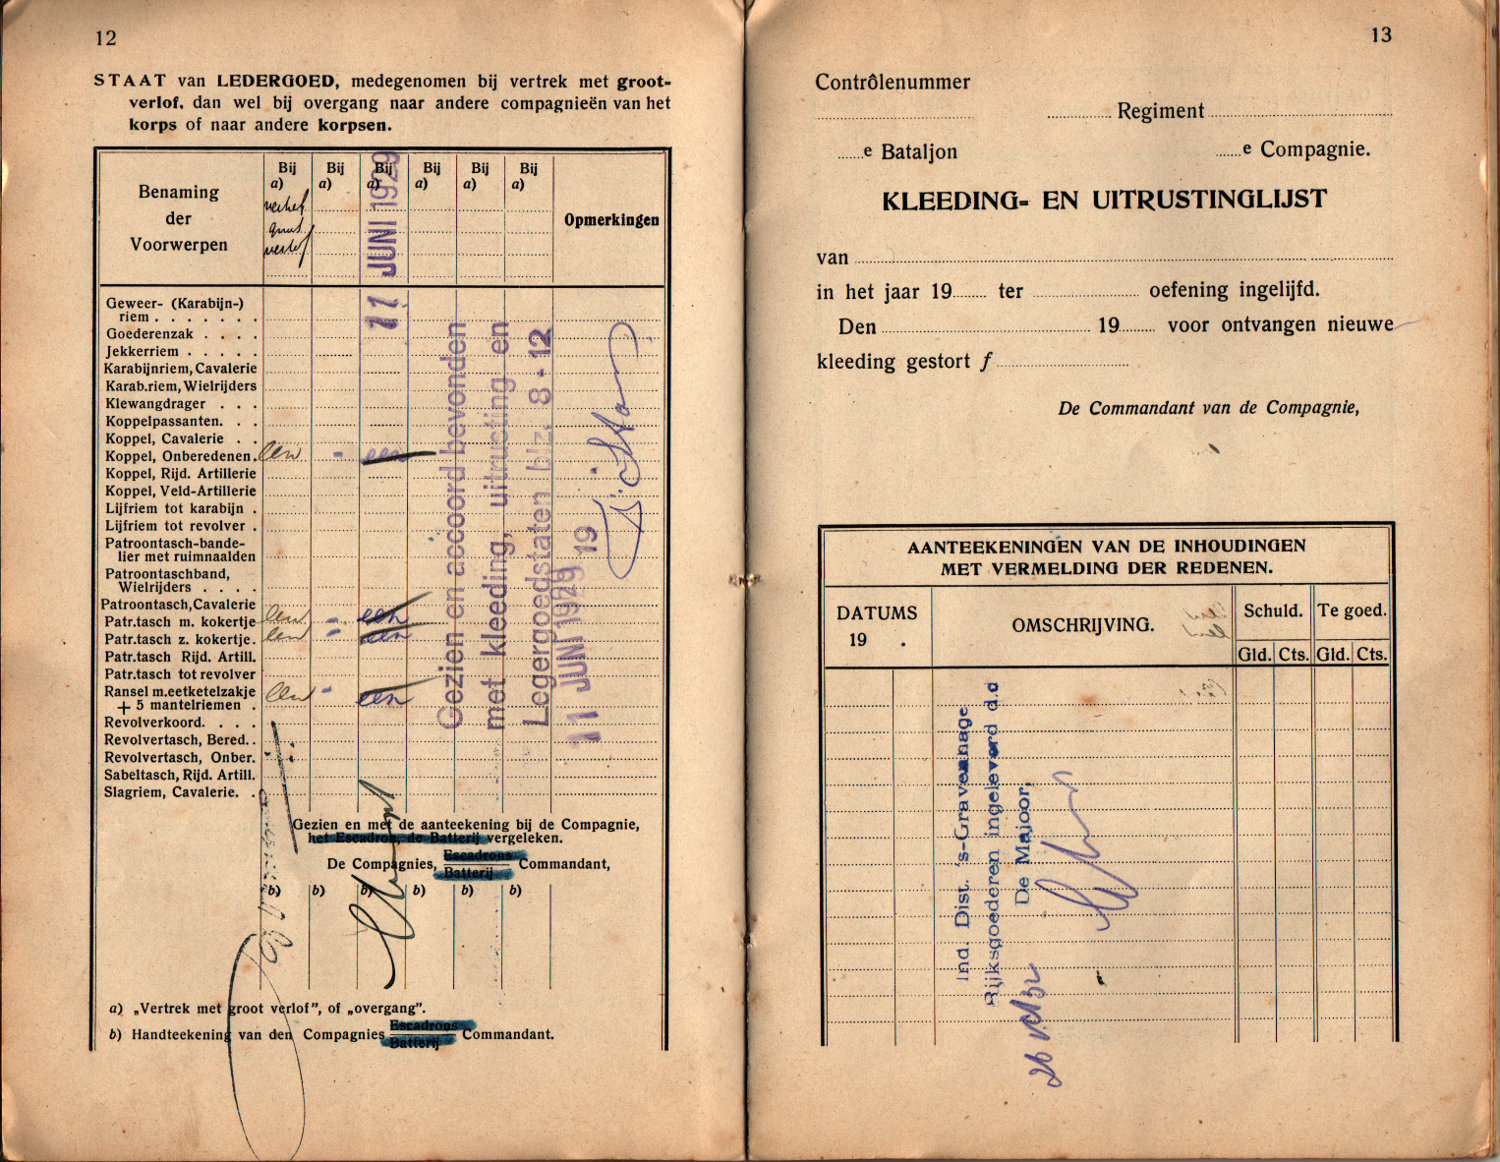 12
STAAT van LEDERGOED, medegenomen bij vertrek met groot-
verlof, dan wel bij overgang naar andere compagnieën van het
korps of naar andere korpsen.
Benaming
der
Voorwerpen
Bij Bij Bij Bij Bij Bij
a) a) a) a) a) a)
verlof
Opmerkingen
Geweer- (Karabijn-)
riem . . . . . . .
Goederenzak . . . .
Jekkerriem . . . . .
Karabijnriem, Cavalerie
Karab.riem, Wielrijders
Klewangdrager . . .
Koppelpassanten. . .
Koppel, Cavalerie . .
Koppel, Onberedenen. een - een
Koppel, Rijd. Artillerie
Koppel, Veld-Artillerie
Lijfriem tot karabijn .
Lijfriem tot revolver .
Patroontasch-bande-
lier met ruimnaalden
Patroontaschband,
Wielrijders . . . .
Patroontasch, Cavalerie
Patr.tasch m. kokertje een = een
Patr.tasch z. kokertje. een - een
Patr.tasch Rijd. Artill.
Patr.tasch tot revolver
Ransel m.eetketelzakje een - een
+ 5 mantelriemen .
Revolverkoord. . . .
Revolvertasch, Bered. .
Revolvertasch, Onber.
Sabeltasch, Rijd. Artill.
Slagriem, Cavalerie. .
11 JUNI 1929
Gezien en accoord bevonden
met kleeding, uitrusting en
Legergoedstaten blz. 8 - 12
11 JUNI 1929 19
Gezien en met de aanteekening bij de Compagnie,
het Escadron, de Batterij vergeleken.
De Compagnies, Escadrons Batterij Commandant,
b) b) b) b) b) b)
a) „Vertrek met groot verlof", of „overgang".
b) Handteekening van den Compagnies Escadrons Batterij Commandant.
13
Contrôlenummer
Regiment
e Bataljon e Compagnie.
KLEEDING- EN UITRUSTINGLIJST
van
in het jaar 19 ter oefening ingelijfd.
Den 19 voor ontvangen nieuwe
kleeding gestort f
De Commandant van de Compagnie,
AANTEEKENINGEN VAN DE INHOUDINGEN
MET VERMELDING DER REDENEN.
DATUMS
19 .
OMSCHRIJVING.
Schuld. Te goed.
Gld. Cts. Gld. Cts.
Ind. Dist. 's-Gravenhage
Rijksgoederen ingeleverd d.d
De Majoor,